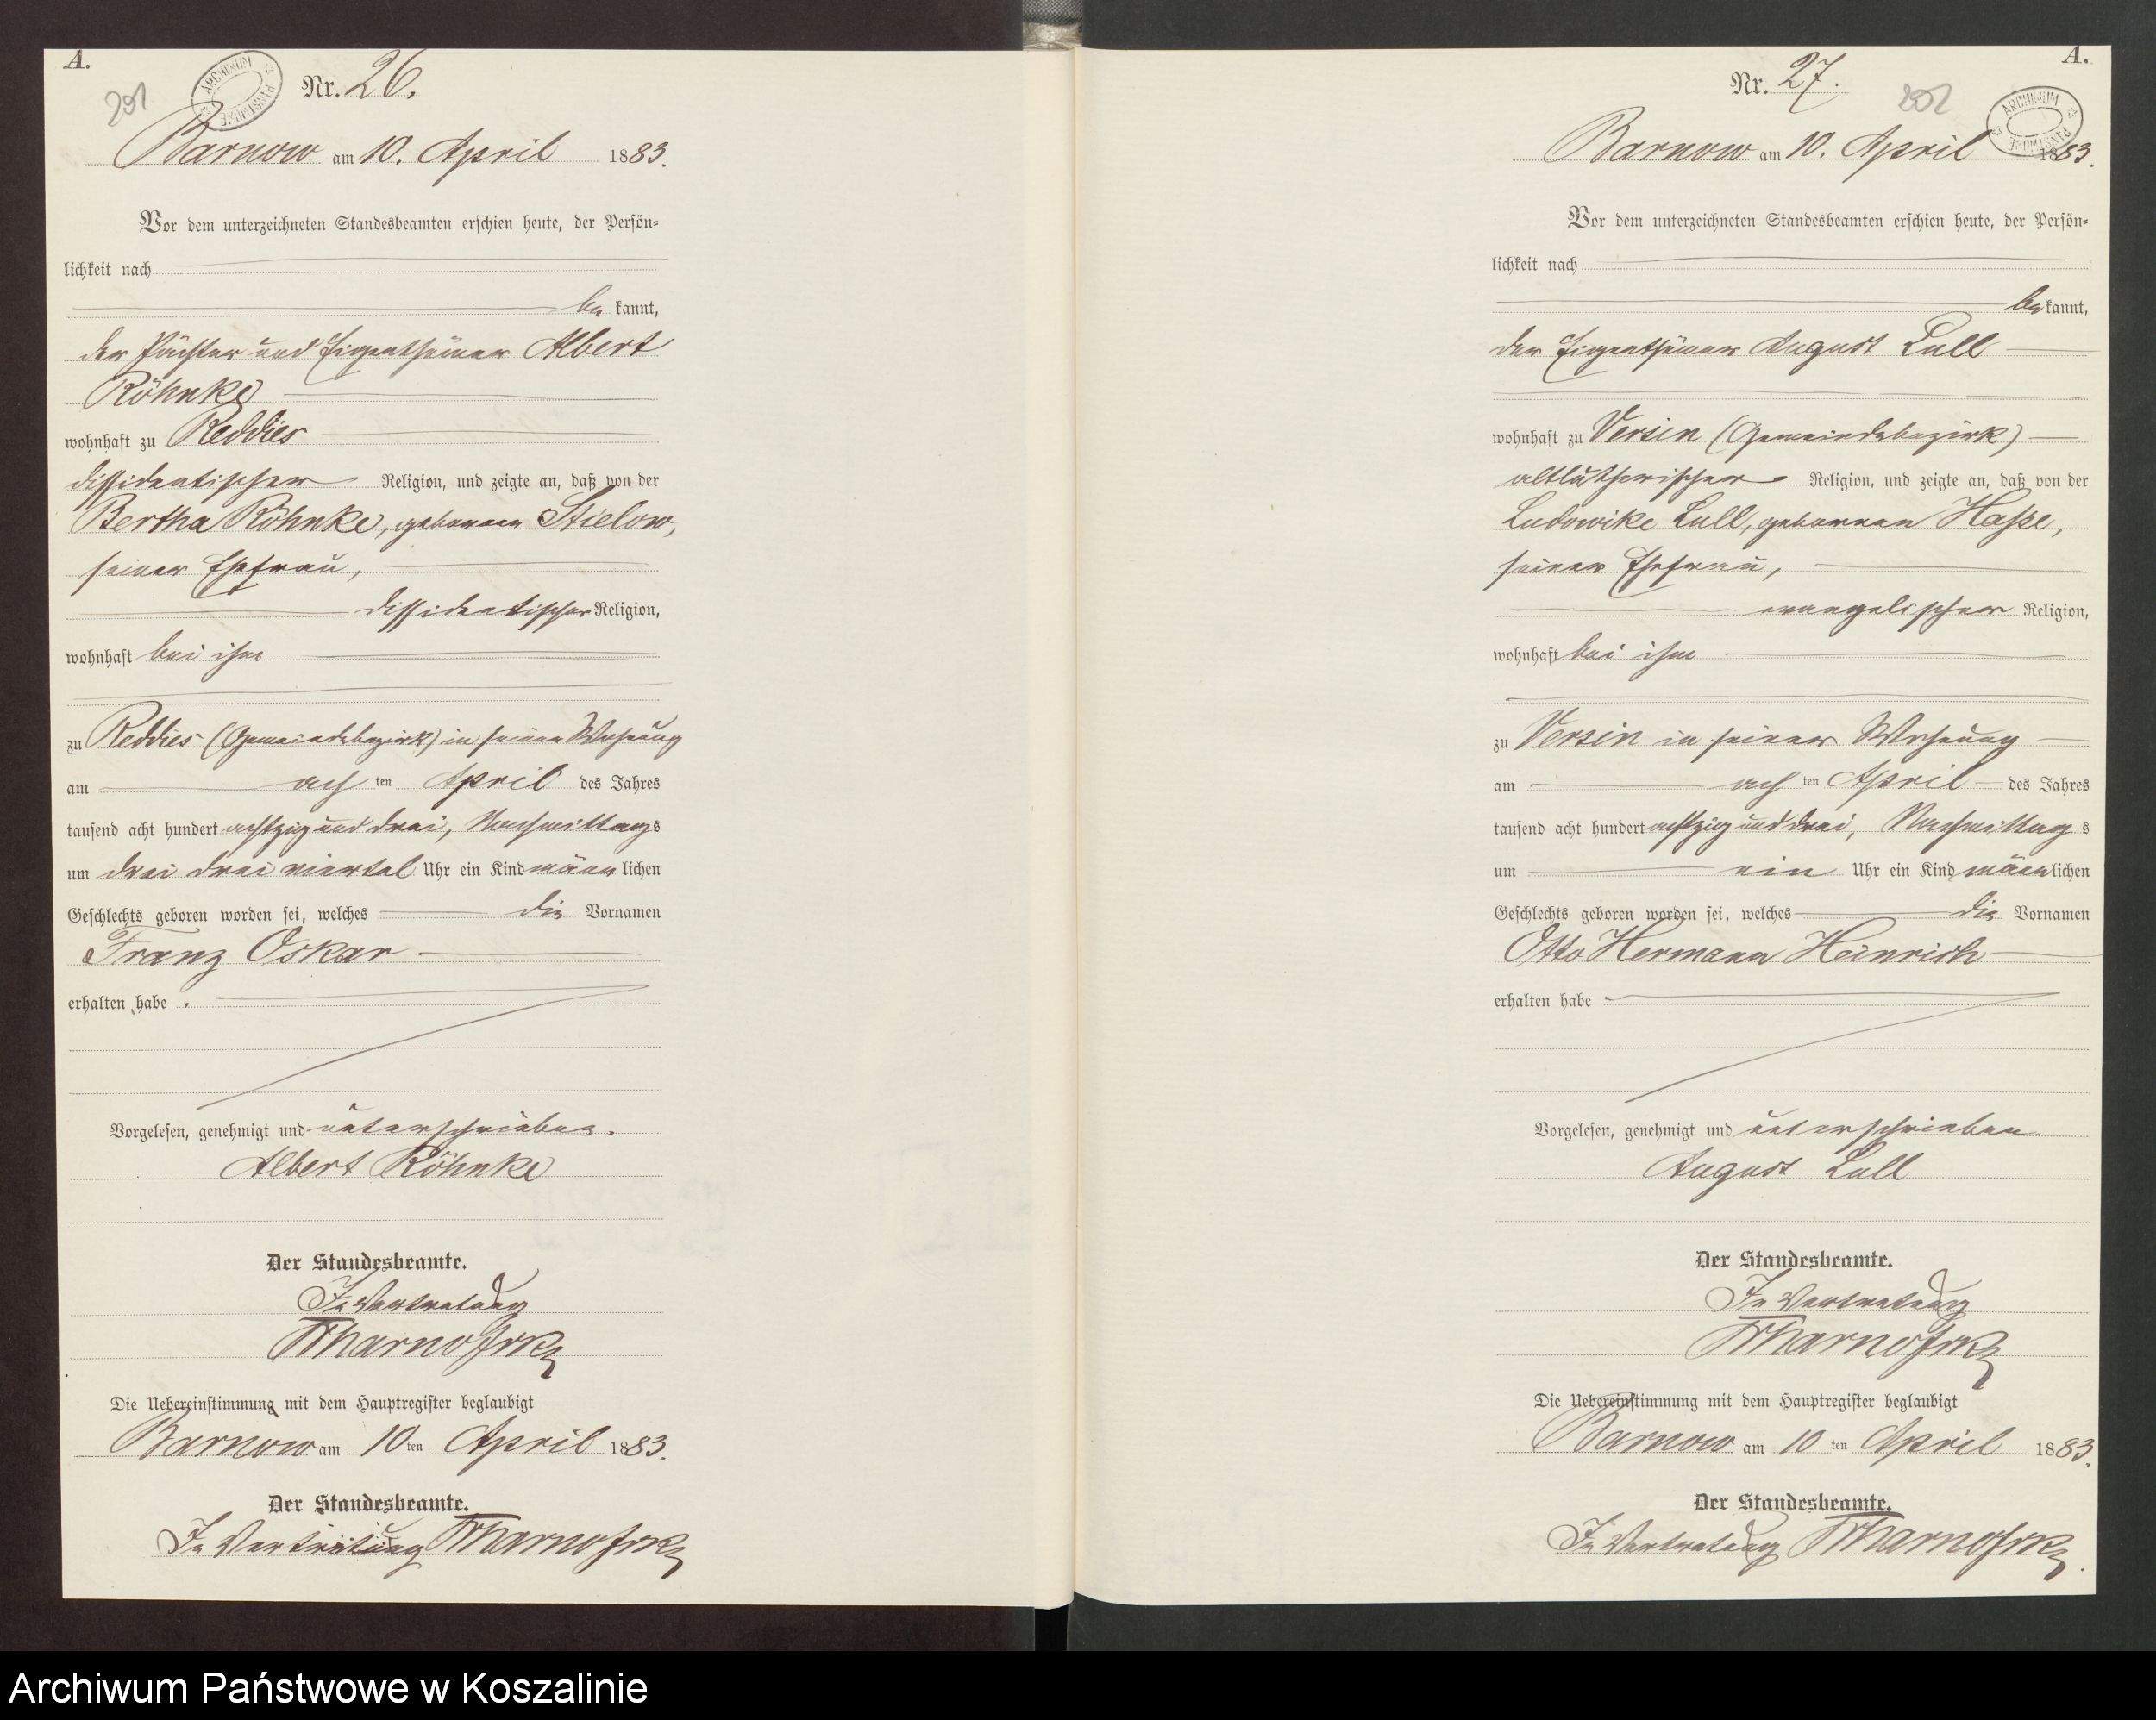 A.
201
ARCHIWUM PAŃSTWOWE
Nr. 26.
Barnow am 10. April 1883.
Vor dem unterzeichneten Standesbeamten erschien heute, der Persön-
lichkeit nach
be kannt,
der Pächter und Eigenthümer Albert
Röhnke
wohnhaft zu Reddies
dissidentischer Religion, und zeigte an, daß von der
Bertha Röhnke, geborenen Stielow,
seiner Ehefrau,
dissidentischer Religion,
wohnhaft bei ihm
zu Reddies (Gemeindebezirk) in seiner Wohnung
am ach ten April des Jahres
tausend acht hundert achtzig und drei, Nachmittags
um drei drei viertel Uhr ein Kind männ lichen
Geschlechts geboren worden sei, welches die Vornamen
Franz Oskar
erhalten habe.
Vorgelesen, genehmigt und unterschrieben.
Albert Röhnke
Der Standesbeamte.
In Vertretung
Die Uebereinstimmung mit dem Hauptregister beglaubigt
Barnow am 10 ten April 1883.
Der Standesbeamte.
In Vertretung
A.
202
ARCHIWUM PAŃSTWOWE
Nr. 27.
Barnow am 10. April 1883.
Vor dem unterzeichneten Standesbeamten erschien heute, der Persön-
lichkeit nach
be kannt,
der Eigenthümer August Lull
wohnhaft zu Versin (Gemeindebezirk)
altlutherischer Religion, und zeigte an, daß von der
Ludowike Lull, geborenen Haße,
seiner Ehefrau,
evangelischer Religion,
wohnhaft bei ihm
zu Versin in seiner Wohnung
am ach ten April des Jahres
tausend acht hundert achtzig und drei, Nachmittag s
um ein Uhr ein Kind männ lichen
Geschlechts geboren worden sei, welches die Vornamen
Otto Hermann Heinrich
erhalten habe
Vorgelesen, genehmigt und unterschrieben
August Lull
Der Standesbeamte.
In Vertretung
Die Uebereinstimmung mit dem Hauptregister beglaubigt
Barnow am 10 ten April 1883.
Der Standesbeamte.
In Vertretung
Archiwum Państwowe w Koszalinie